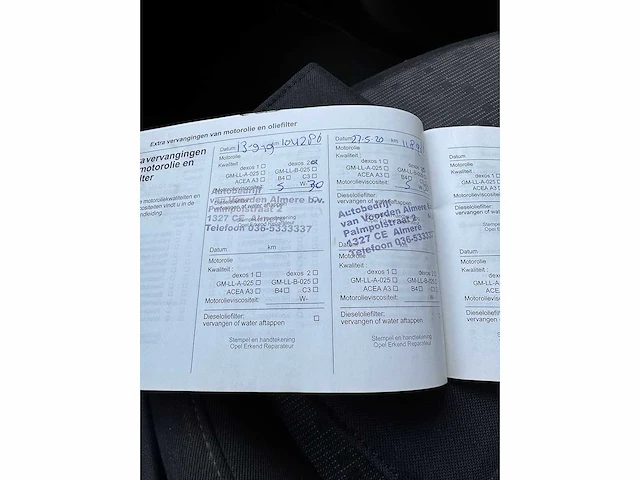 Extra vervangingen van motorolie en oliefilter
ra vervangingen
motorolie en
lter
e motoroliekwaliteiten en
cositeiten vindt u in de
ndleiding.
Datum
104286
Motorolie
Kwaliteit
dexos 1 ☐ dexos 2
GM-LL-A-025 ☐ GM-LL-B-025 ☐
ACEA A3 ☐ B4 ☐ C3 ☐
5 W- 30
Autobedrijf
van Voorden Almere b.v.
Palmpolstraat 2
1327 CE Almere
Telefoon 036-5333337
vervangen of water aftappen
Stempel en handtekening
Opel Erkend Reparateur
Datum km
Motorolie
Kwaliteit :
dexos 1 ☐ dexos 2 ☐
GM-LL-A-025 ☐ GM-LL-B-025 ☐
ACEA A3 ☐ B4 ☐ C3 ☐
Motorolieviscositeit: W-
Dieseloliefilter:
vervangen of water aftappen ☐
Stempel en handtekening
Opel Erkend Reparateur
Datum 27-5-20 km
Motorolie
Kwaliteit :
dexos 1 ☐ dexos 2
GM-LL-A-025 ☐ GM-LL-B-025 ☐
ACEA A3 ☐ B4 ☐ C3 ☐
Motorolieviscositeit: 5 W-
Autobedrijf
van Voorden Almere
Palmpolstraat 2
1327 CE Almere
Telefoon 036-5333337
Datum
Motorolie
Kwaliteit :
dexos 1 ☐ dexos 2 ☐
GM-LL-A-025 ☐ GM-LL-B-025 ☐
ACEA A3 ☐ B4 ☐ C3 ☐
Motorolieviscositeit: W-
Dieseloliefilter:
vervangen of water aftappen ☐
Stempel en handtekening
Opel Erkend Reparateur
Datum
Motorolie
Kwaliteit :
GM-LL-A-025
ACEA A3
Motorolieviscos
Dieseloliefilter
vervangen of
Datum
Motorolie
Kwaliteit :
GM-LL-A-02
ACEA A3
Motorolievisc
Dieseloliefilte
vervangen of